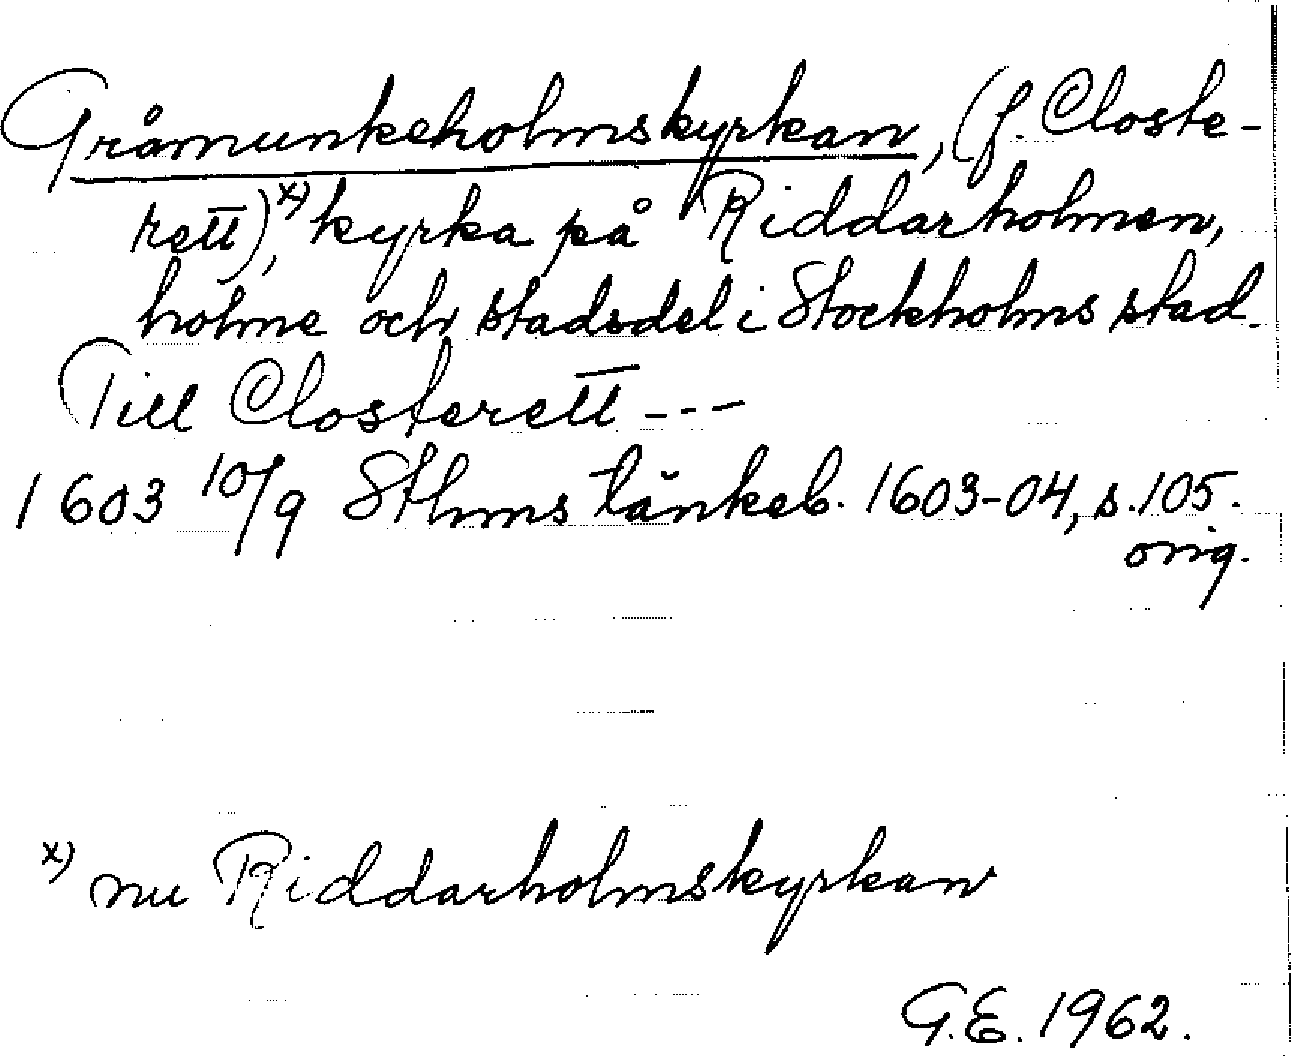 Gråmunkeholmskyrkan, (f. Closte-
rett),x) kyrka på Riddarholmen,
holme och stadsdel i Stockholms stad.
Till Closterett ---
1603 10/9 Sthms tänkeb. 1603-04, s. 105.
orig.
x) nu Riddarholmskyrkan
G.E. 1962.